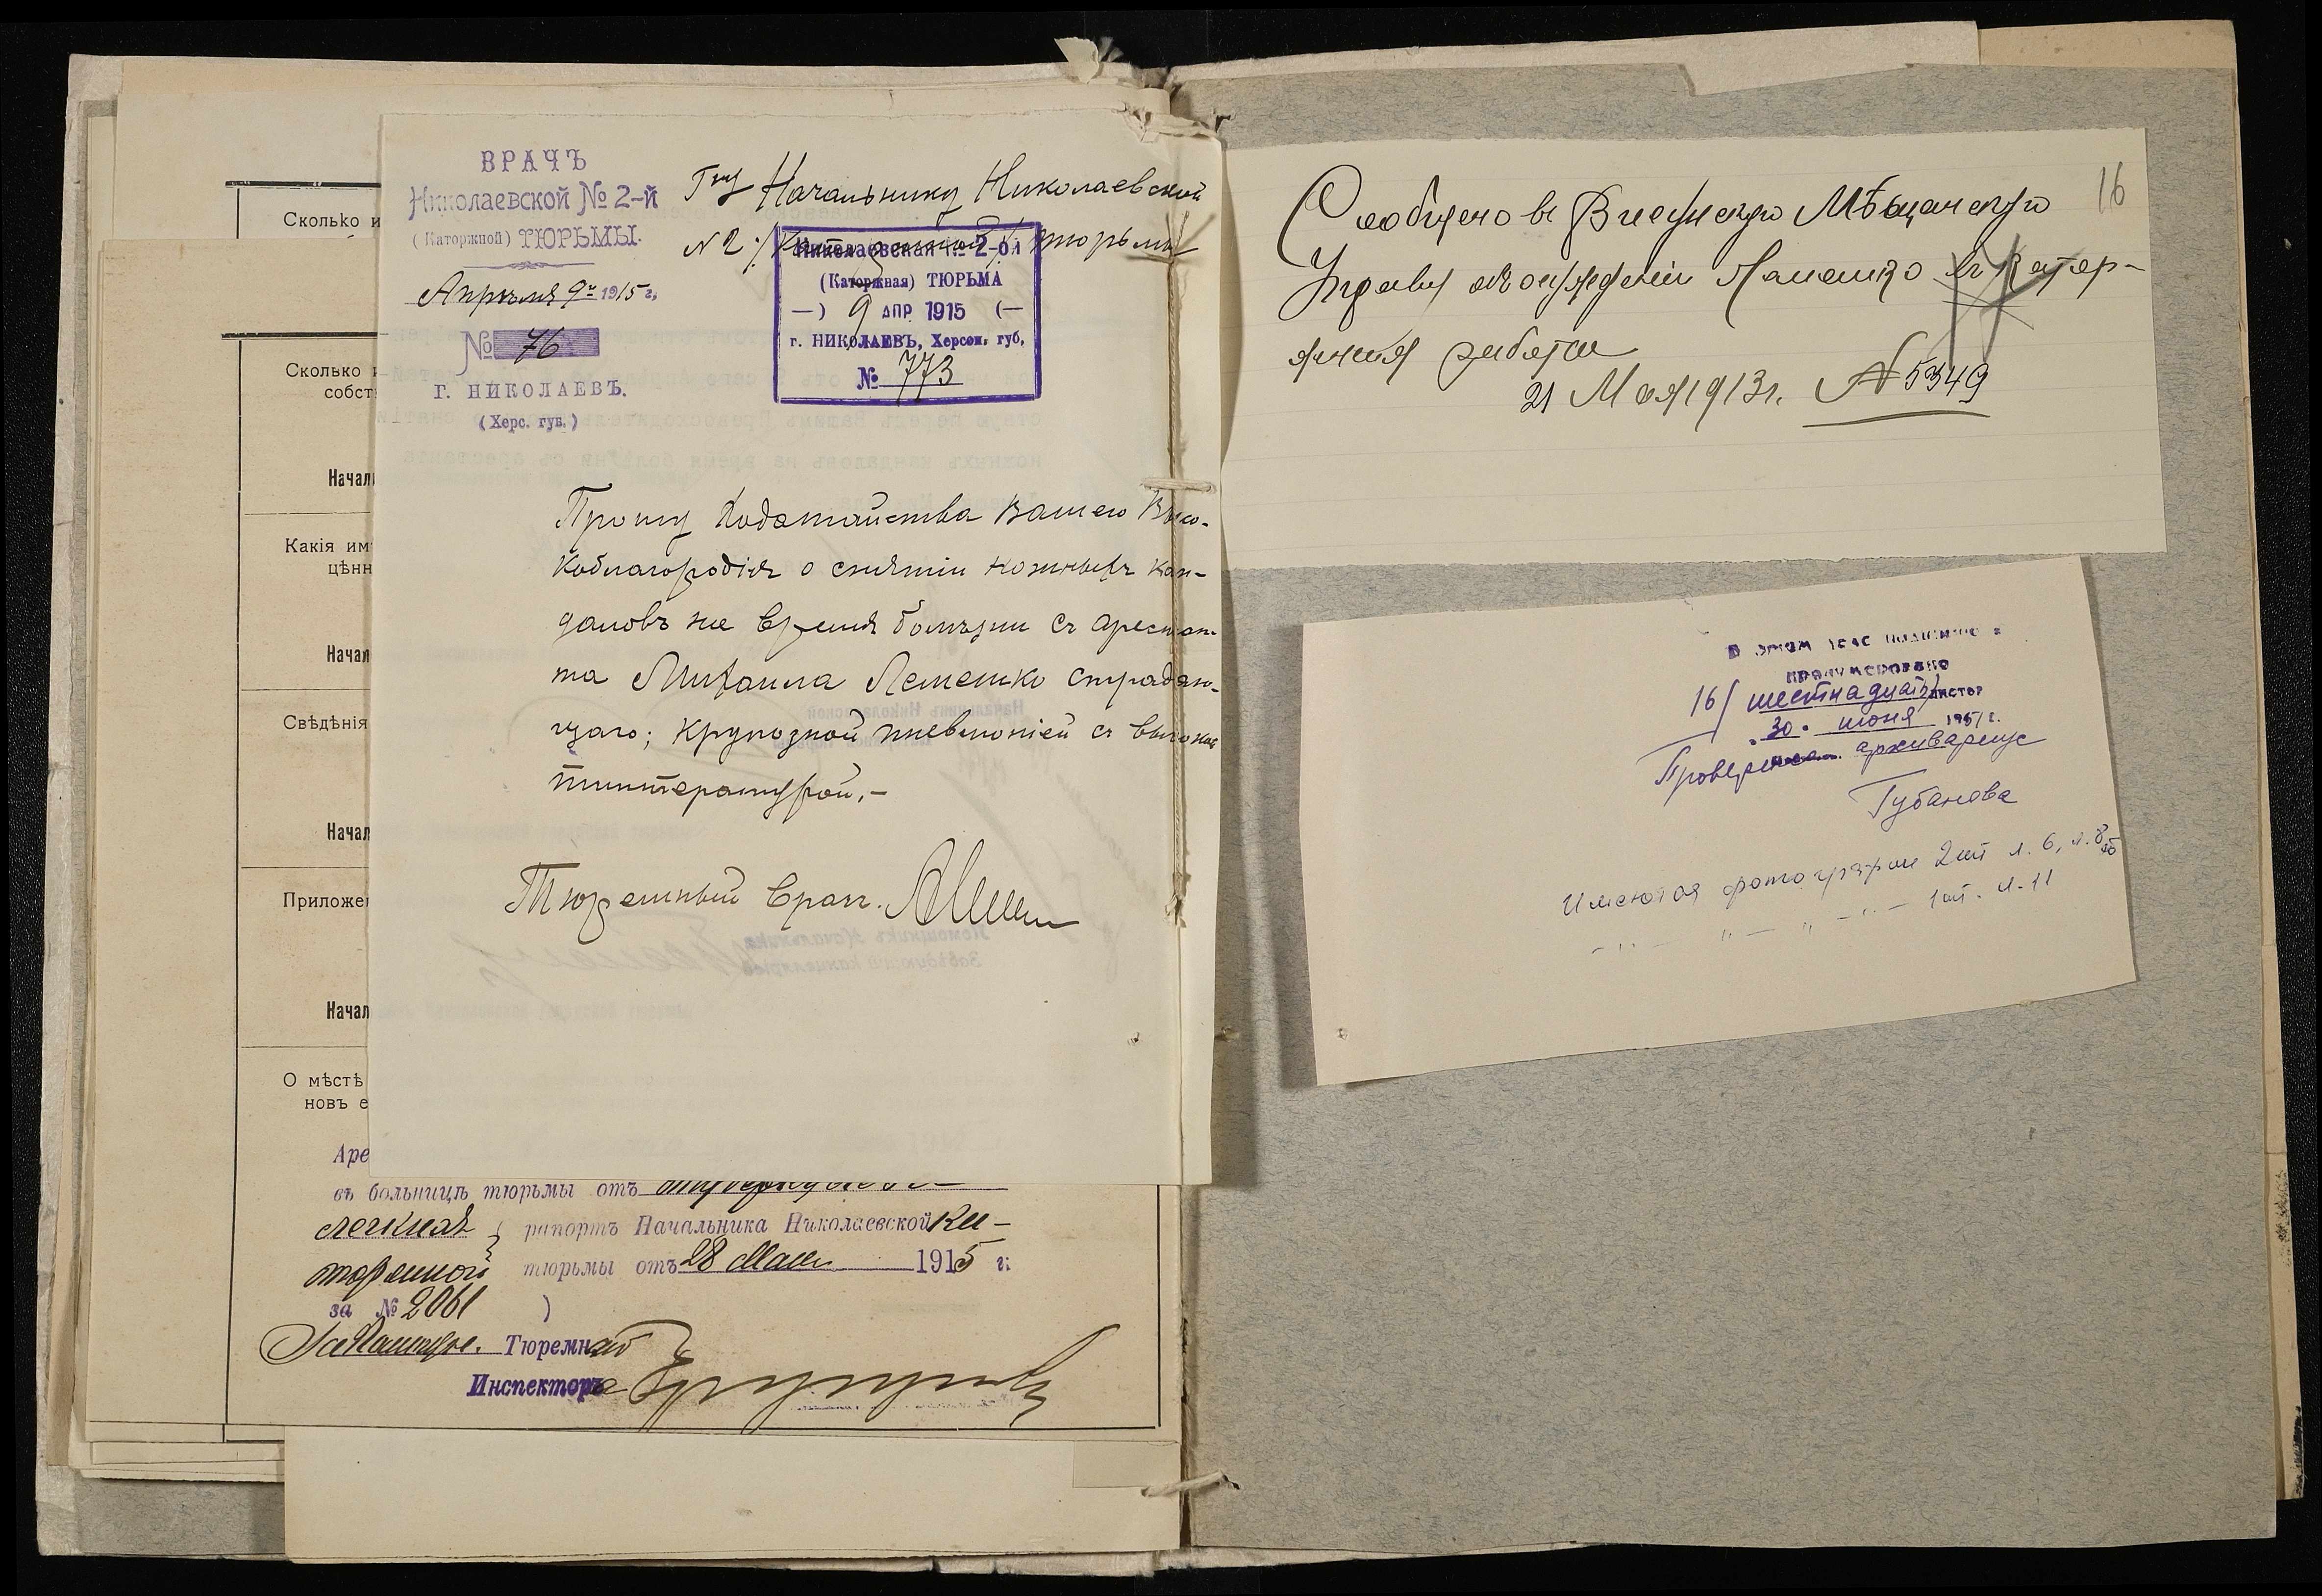 ВРАЧЪ
Николаевской № 2-й
(Каторжной) ТЮРЬМЫ.
Апрѣля 9 1915 г.
№ 76
Г. НИКОЛАЕВЪ.
(Херс. губ.)
Начальнику Николаевской
№ 2 тюрьмы
Николаевская № 2-ой
(Каторжная) ТЮРЬМА
—) 9 АПР 1915 (—
г. НИКОЛАЕВЪ, Херсон. губ.
№ 773
Прошу ходатайства Вашего Высо-
коблагородія о снятіи ножныхъ кан-
даловъ на время болѣзни съ арестан-
та Михаила Лемешко страдаю-
щаго; крупозной пневмоніей съ высокой
температурой.-
Тюремный врач.
Сколько и
Сколько и
собст
Начал
Какія им
цѣнн
Начал
Свѣдѣнія
Начал
Приложе
Начал
О мѣстѣ
новъ е
Аре
въ больницѣ тюрьмы отъ
легкихъ рапортъ Начальника Николаевской Ка-
торжной тюрьмы отъ 28 Мая 1915 г.
за № 2061 )
Тюремнаго
Инспектора
16
Сообщено въ Мѣщанскую
Управу объ осужденіи Лемешко въ катор-
жныя работы
21 Мая 1913 г. № 5349
В этом деле подшито и
пронумеровано
16/ шестнадцать/ листов
"30" июня 195 г.
Проверила архивариус
Губанова
Имеются фотографии 2 шт л. 6, л. 8 об
— " — " — " — " — 1 шт. л. 11